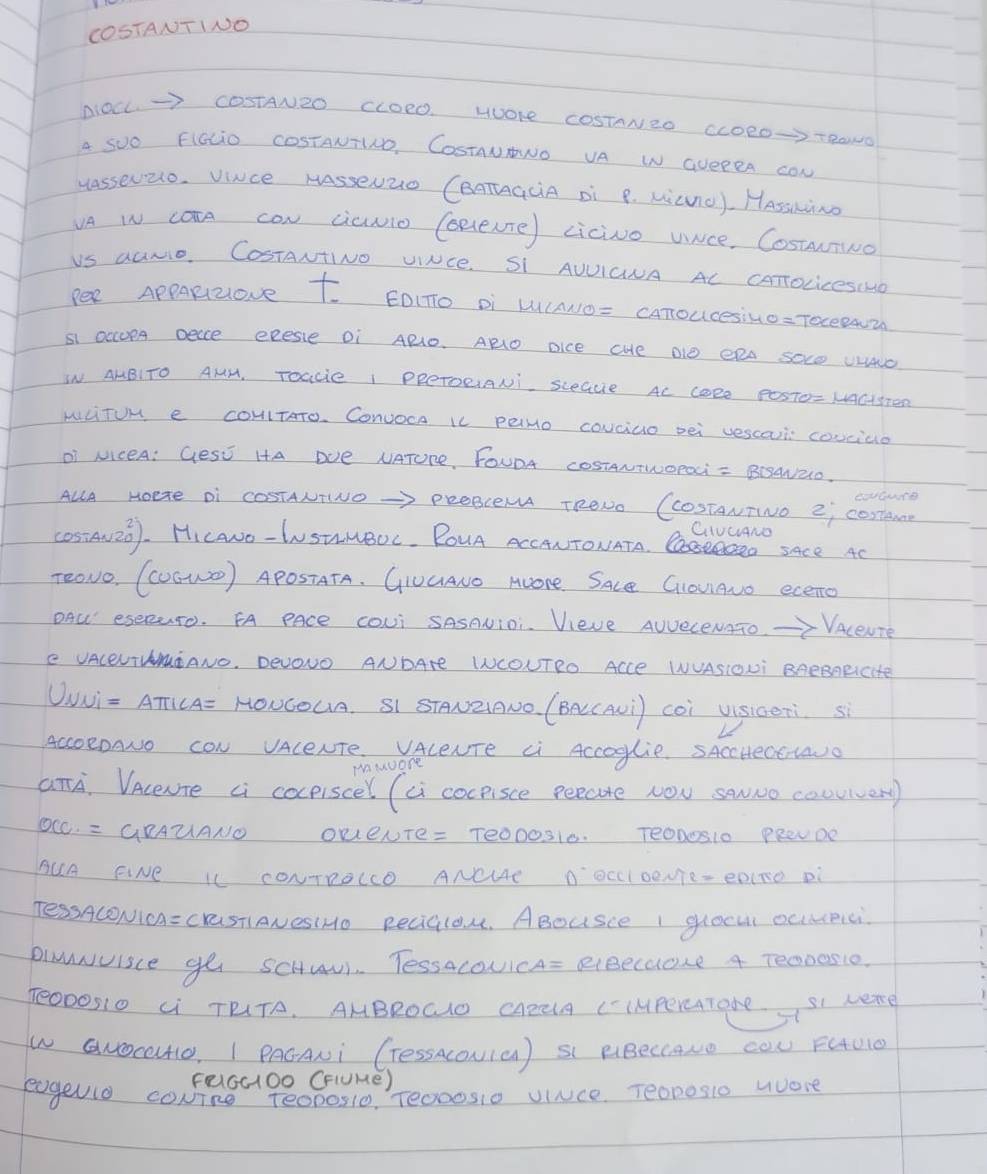 COSTANTINO
DIOCL. → COSTANZO CLORO. MUORE COSTANZO CLORO → TRONO
A SUO FIGLIO COSTANTINO. COSTANTINO VA IN GUERRA CON
MASSENZIO. VINCE MASSENZIO (BATTAGLIA DI P. MILVIO). MASSIMINO
VA IN LOTTA CON LICINIO (ORIENTE) LICINO VINCE. COSTANTINO
VS LICINIO. COSTANTINO VINCE. SI AVVICINA AL CATTOLICESIMO
PER APPARIZIONE †. EDITTO DI MILANO = CATTOLICESIMO = TOLERANZA
SI OCCUPA DELLE ERESIE DI ARIO. ARIO DICE CHE DIO ERA SOLO UMANO.
IN AMBITO AMM. TOGLIE I PRETORIANI. SCEGLIE AL LORO POSTO = MAGISTER
MILITUM E COMITATO. CONVOCA IL PRIMO CONCILIO DEI VESCOVI: CONCILIO
DI NICEA: GESÙ HA DUE NATURE. FONDA COSTANTINOPOLI = BISANZIO.
ALLA MORTE DI COSTANTINO → PROBLEMA TRONO (COSTANTINO 2; COSTANTE
COSTANZO 2). MILANO - INSTAMBUL. ROMA ACCANTONATA. GIULIANO SALE AL
TRONO. (CUGINO) APOSTATA. GIULIANO MUORE. SALE GIOVIANO ELETTO
DALL' ESERCITO. FA PACE CON I SASANIDI. VIENE AVVELENATO. → VALENTE
E VALENTINIANO. DEVONO ANDARE INCONTRO ALLE INVASIONI BARBARICHE
UNNI = ATTILA = MONGOLIA. SI STANZIANO. (BALCANI) COI VISIGOTI. SI
ACCORDANO CON VALENTE. VALENTE LI ACCOGLIE. SACCHEGGIANO
CITTÀ. VALENTE LI COLPISCE MA MUORE. (LI COLPISCE PERCHE NON SANNO CONVIVERE)
OCC. = GRAZIANO ORIENTE = TEODOSIO. TEODOSIO PRENDE
ALLA FINE IL CONTROLLO ANCHE D'OCCIDENTE = EDITTO DI
TESSALONICA = CRISTIANESIMO RELIGION. ABOLISCE I GIOCHI OLIMPICI.
DIMINUISCE GLI SCHIAVI. TESSALONICA = RIBELLIONE A TEODOSIO.
TEODOSIO LI TRITA. AMBROGIO CAZZIA L'IMPERATORE SI METTE
IN GINOCCHIO. I PAGANI (TESSALONICA) SI RIBELLANO CON FLAVIO
EUGENIO CONTRO TEODOSIO. FRIGGIDO (FIUME) TEODOSIO VINCE. TEODOSIO MUORE